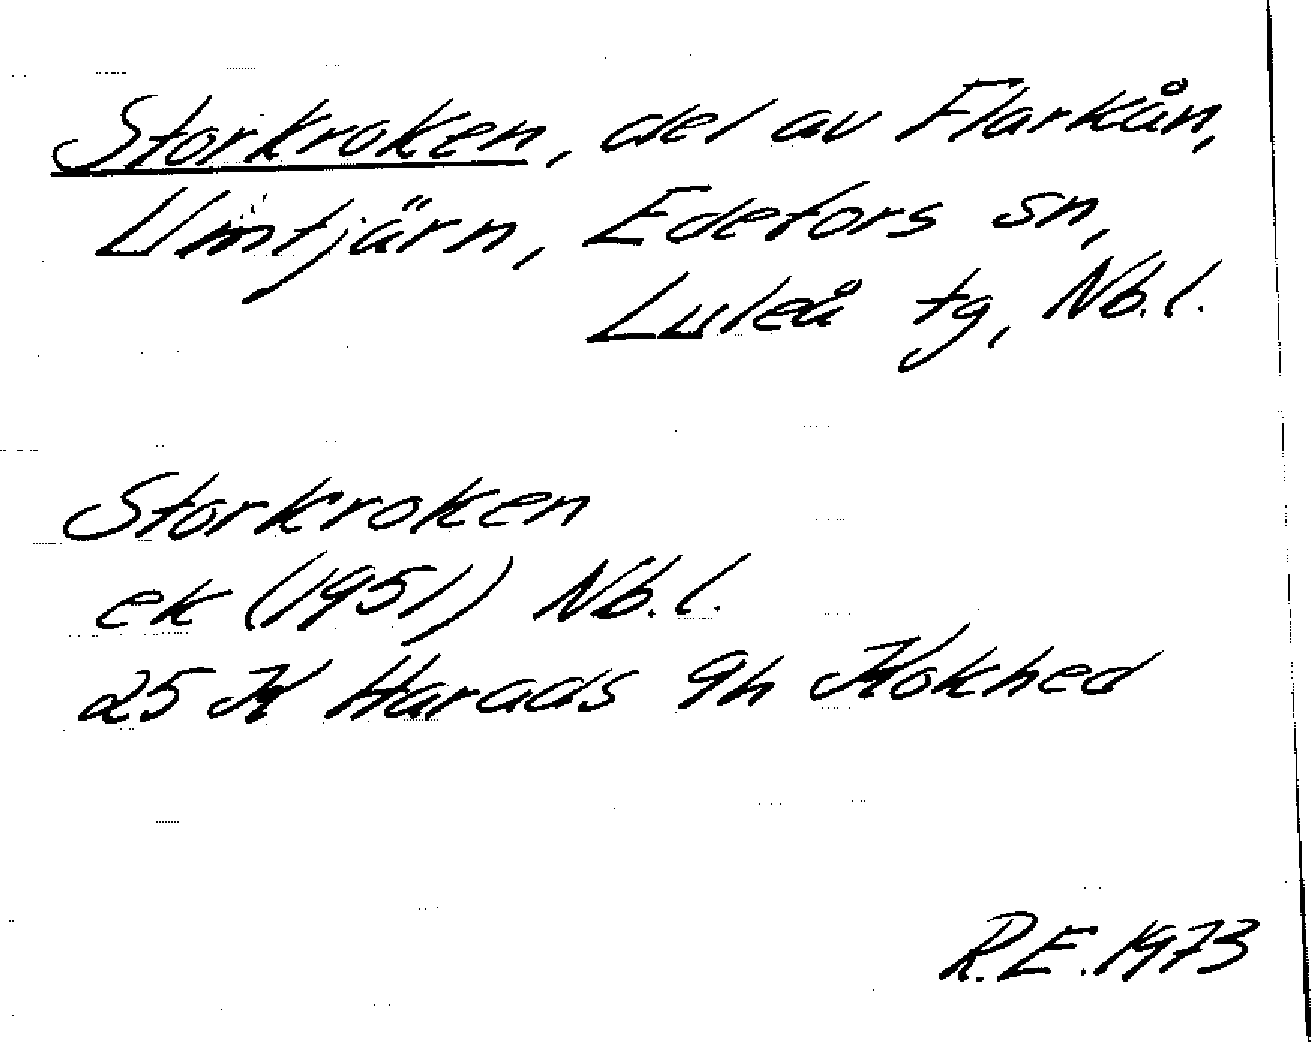 Storkroken, del av Flarkån,
Umtjärn, Edefors sn,
Luleå tg, Nb.l.
Storkroken
ek (1951) Nb.l.
25 K Harads 9h Kokhed
R.E. 1973